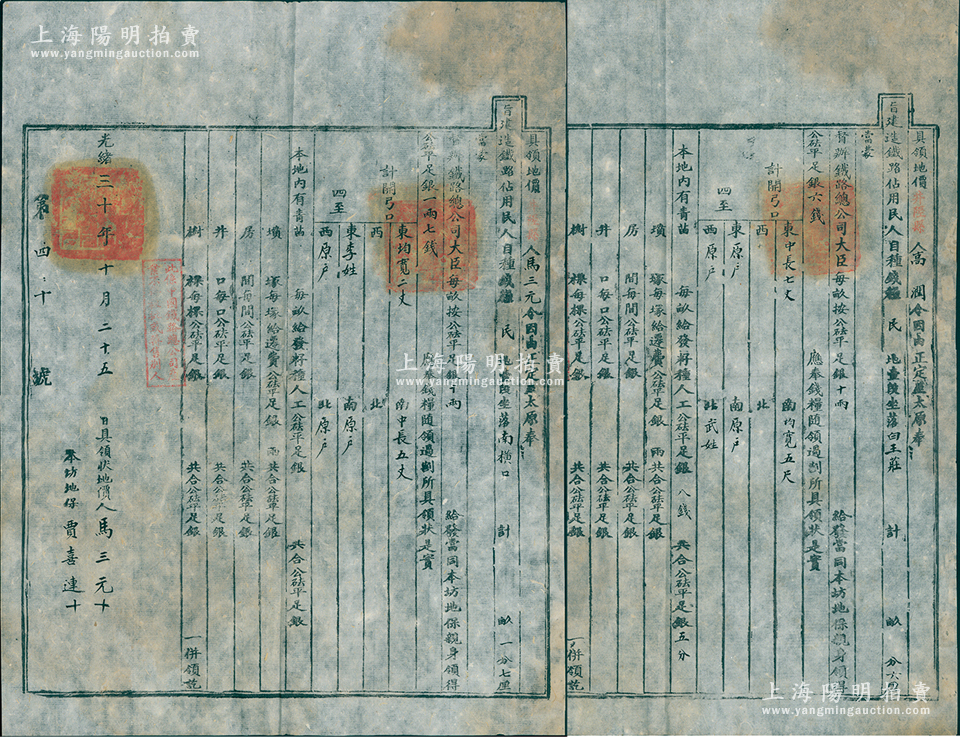 上海陽明拍賣
www.yangmingauction.com
具領地價
人馬三元今因
正定
太原奉
旨建造鐵路佔用民人自種錢糧
民
地壹段坐落南橫口
計
畝
一分七厘
當蒙
督辦鐵路總公司大臣每畝按公砝平足銀十兩
給發當同本坊地保親身領得
公砝平足銀一兩七錢
應奉錢糧隨領過割所具領狀是實
計開弓口
東均寬二丈
西
南中長五丈
北
四至
東李姓
西原戶
南原戶
北原戶
本地內有青苗
每畝給發籽種人工公砝平足銀
共合公砝平足銀
墳
塚每塚給遷費公砝平足銀
兩共合公砝平足銀
房
間每間公砝平足銀
共合公砝平足銀
井
口每口公砝平足銀
共合公砝平足銀
樹
棵每棵公砝平足銀
共合公砝平足銀
一併領訖
光緒三十年十月二十五
日具領狀地價人馬三元十
本坊地保賈喜連十
第四十號
具領地價
人高
潤今因
正定
太原奉
旨建造鐵路佔用民人自種錢糧
民
地壹段坐落白王莊
計
畝
分六
當蒙
督辦鐵路總公司大臣每畝按公砝平足銀十兩
給發當同本坊地保親身領得
公砝平足銀六錢
應奉錢糧隨領過割所具領狀是實
計開弓口
東中長七丈
西
南均寬五尺
北
四至
東原戶
西原戶
南原戶
北武姓
本地內有青苗
每畝給發籽種人工公砝平足銀
八錢
共合公砝平足銀五分
墳
塚每塚給遷費公砝平足銀
兩共合公砝平足銀
房
間每間公砝平足銀
共合公砝平足銀
井
口每口公砝平足銀
共合公砝平足銀
樹
棵每棵公砝平足銀
共合公砝平足銀
一併領訖
上海陽明拍賣
www.yangmingauction.com
上海陽明拍賣
www.yangmingauction.com